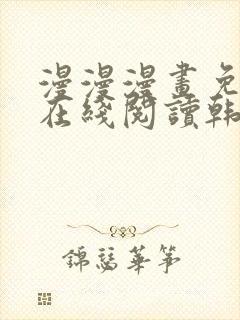 漫漫漫畫免
在綫閱讀韩
錦瑟華箏